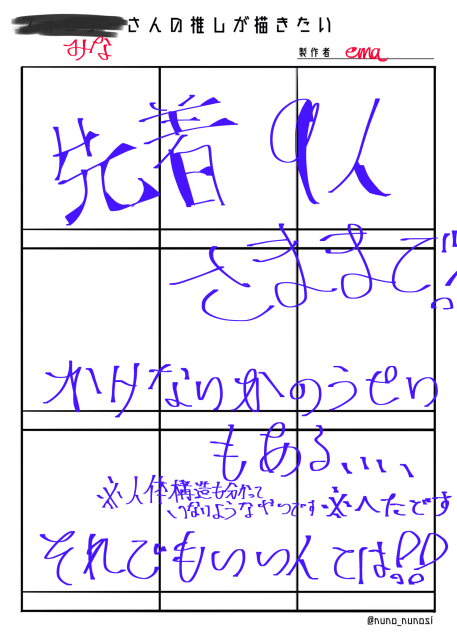 さんの推しが描きたい
みな
製作者 ema
先着9人
さままで!
かけない かのうせい
もある、、、
※人体構造も分かって
いないようなやつです ※へたです
それでもいい人は!?!?
@nuno_nunosi